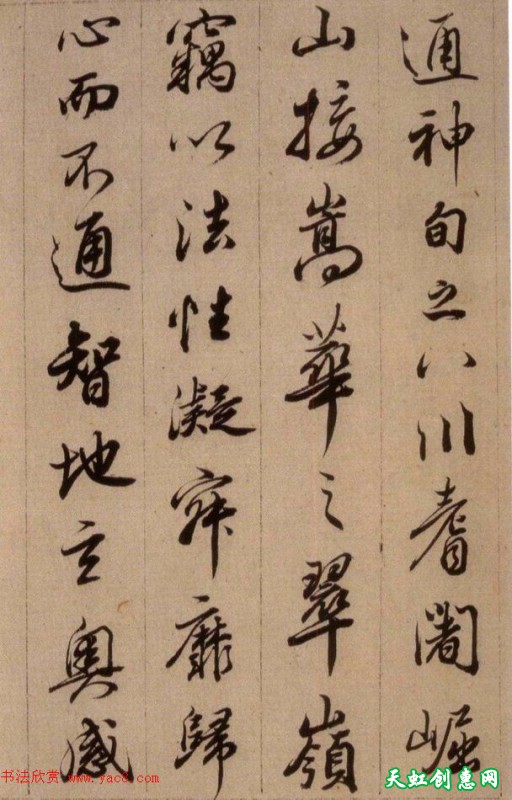 通神甸之八川耆闍崛
山接嵩華之翠嶺
竊以法性凝寂靡歸
心而不通智地玄奧感
书法欣赏 www.yac8.com
天虹创惠网